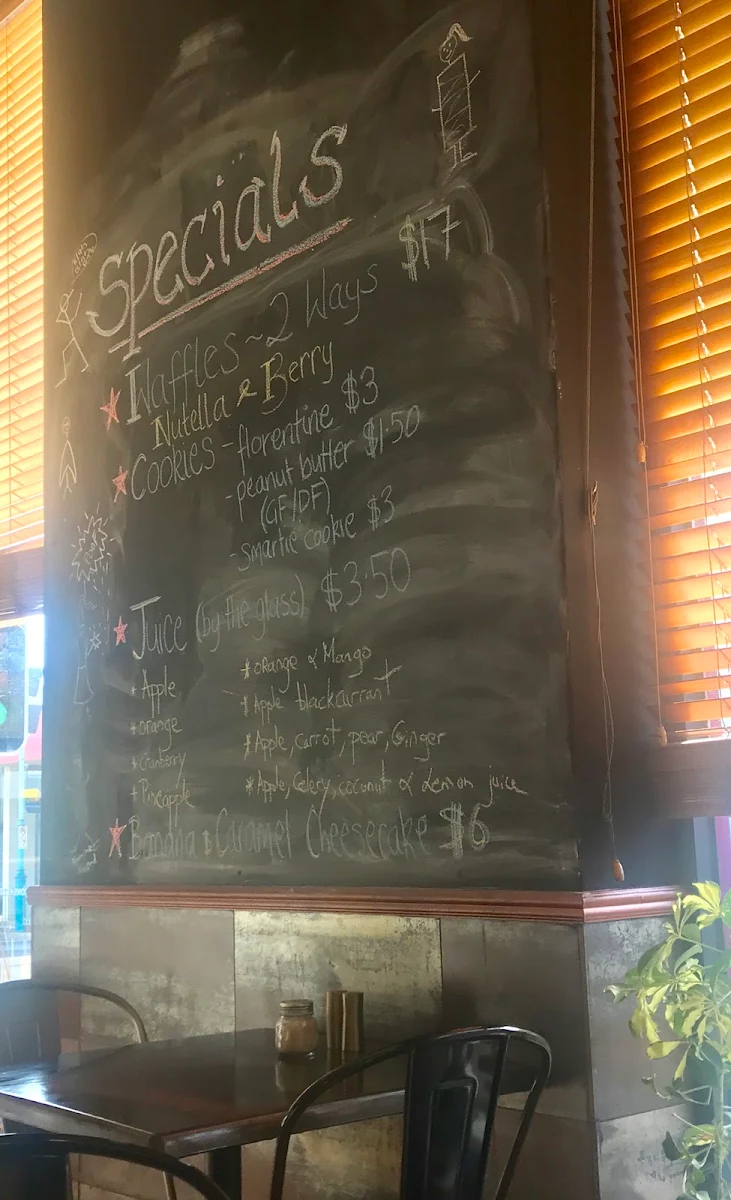 Specials
Waffles ~ 2 Ways $17
Nutella & Berry
Cookies - florentine $3
- peanut butter $1.50
(GF/DF)
- smartie cookie $3
Juice (by the glass) $3.50
* Apple
* orange
* Cranberry
* Pineapple
* orange & Mango
* Apple blackcurrant
* Apple, carrot, pear, Ginger
* Apple, Celery, coconut & Lemon juice
Banana & Caramel Cheesecake $6